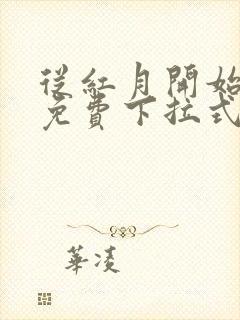 從紅月開始
免費下拉式
華凌